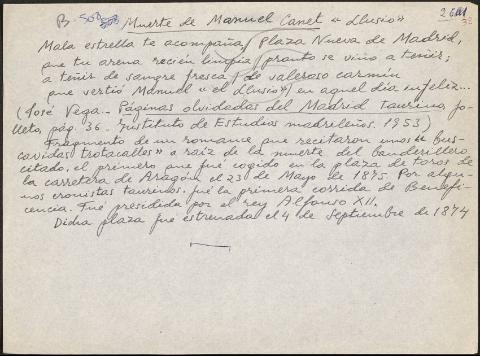 B- 508 508 Muerte de Manuel Canet "Llusio" 2611 38
Mala estrella te acompaña / Plaza Nueva de Madrid,
que tu arena recién limpia / pronto se vino a teñir;
a teñir de sangre fresca / de valeroso carmín
que vertió Manuel "el Llusio" / en aquel día infeliz...
(José Vega - Páginas olvidadas del Madrid taurino, fo-
lleto, pág. 36. Instituto de Estudios madrileños. 1953)
Fragmento de un romance que recitaron unos "bus-
cavidas trotacalles" a raíz de la muerte del banderillero
citado, el primero que fue cogido en la plaza de toros de
la carretera de Aragón el 23 de Mayo de 1875. Por algu-
nos cronistas taurinos, fué la primera corrida de Benefi-
cencia. Fué presidida por el rey Alfonso XII.
Dicha plaza fué estrenada el 4 de Septiembre de 1874